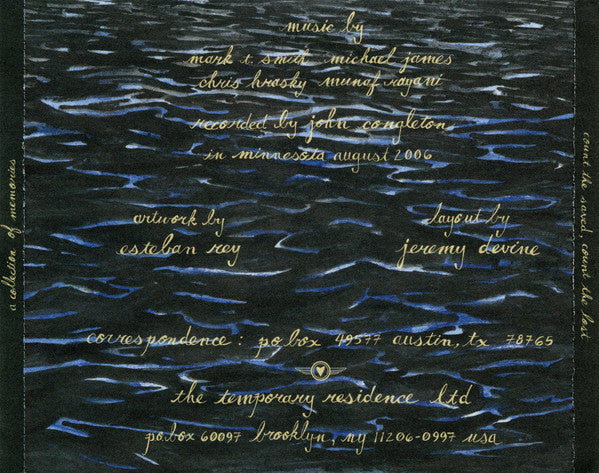 music by
mark t. smith michael james
chris hrasky munaf rayani
recorded by john congleton
in minnesota august 2006
artwork by
esteban rey
layout by
jeremy devine
correspondence: po.box 49577 austin, tx 78765
the temporary residence ltd
po.box 60097 brooklyn, ny 11206-0997 usa
a collection of memories
count the saved count the lost